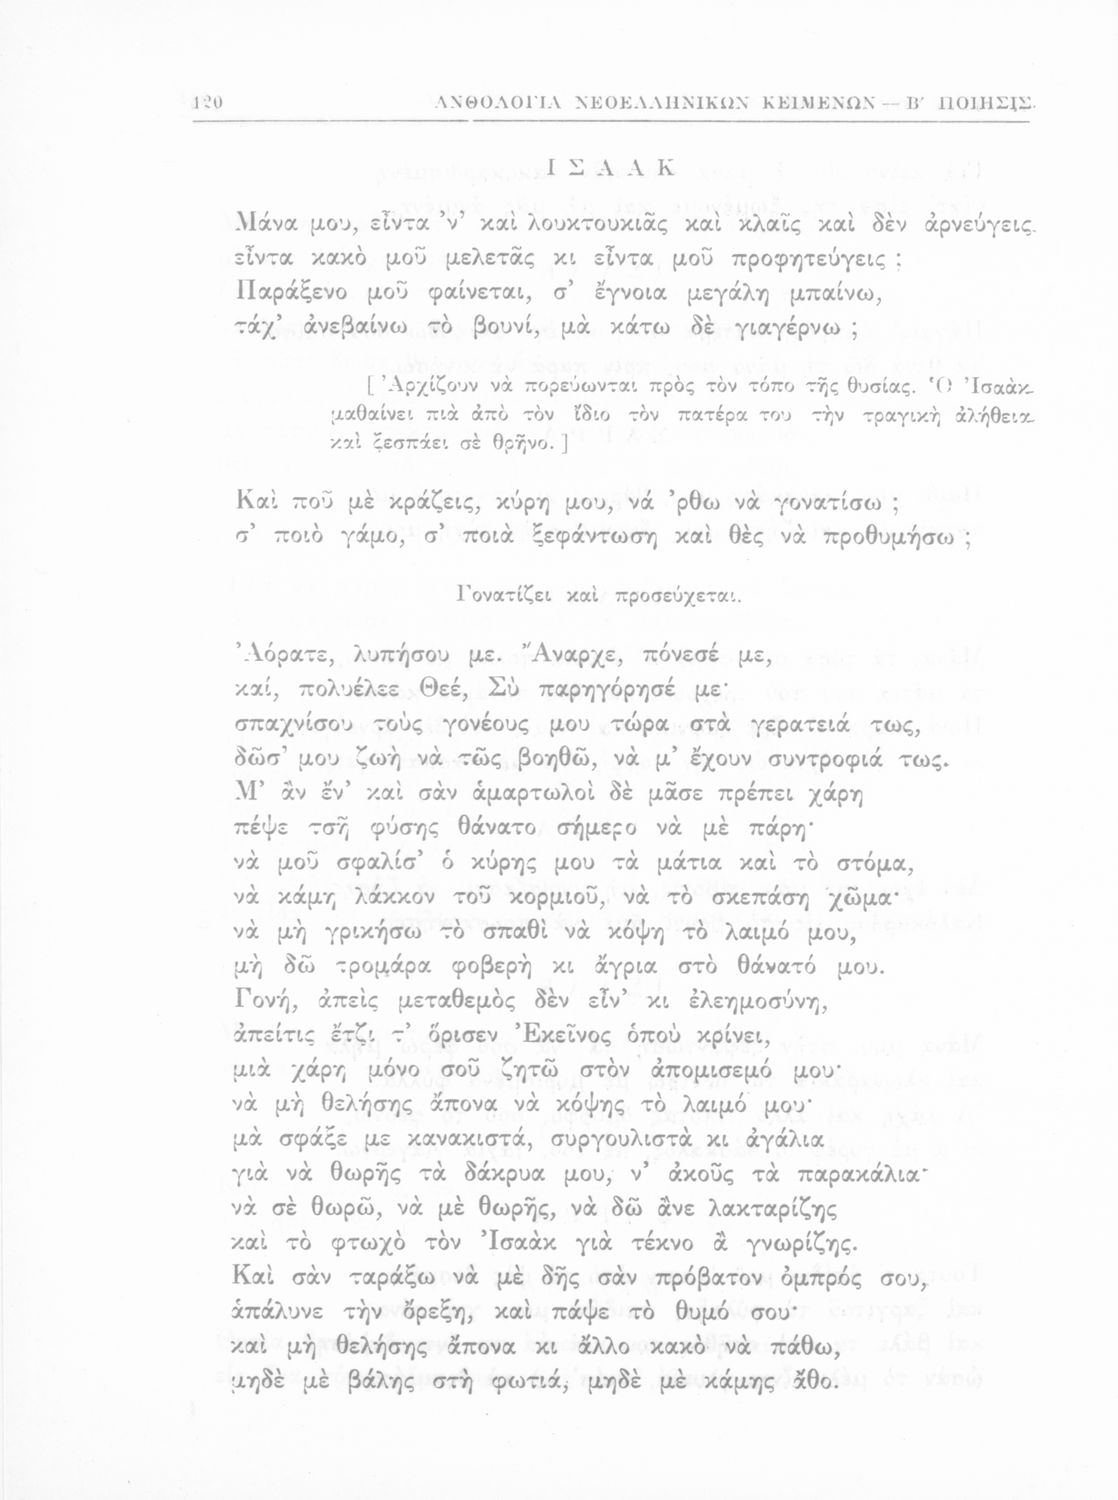 120 ΑΝΘΟΛΟΓΙΑ ΝΕΟΕΛΛΗΝΙΚΩΝ ΚΕΙΜΕΝΩΝ — Β′ ΠΟΙΗΣΙΣ
ΙΣΑΑΚ
Μάνα μου, εἶντα ’ν’ καὶ λουκτουκιᾶς καὶ κλαῖς καὶ δὲν ἀρνεύγεις.
εἶντα κακὸ μοῦ μελετᾶς κι εἶντα μοῦ προφητεύγεις ;
Παράξενο μοῦ φαίνεται, σ’ ἔγνοια μεγάλη μπαίνω,
τάχ’ ἀνεβαίνω τὸ βουνί, μὰ κάτω δὲ γιαγέρνω ;
[ Ἀρχίζουν νὰ πορεύωνται πρὸς τὸν τόπο τῆς θυσίας. Ὁ Ἰσαὰκ
μαθαίνει πιὰ ἀπὸ τὸν ἴδιο τὸν πατέρα του τὴν τραγικὴ ἀλήθεια
καὶ ξεσπάει σὲ θρῆνο. ]
Καὶ ποῦ μὲ κράζεις, κύρη μου, νά ’ρθω νὰ γονατίσω ;
σ’ ποιὸ γάμο, σ’ ποιὰ ξεφάντωση καὶ θὲς νὰ προθυμήσω ;
Γονατίζει καὶ προσεύχεται.
Ἀόρατε, λυπήσου με. Ἄναρχε, πόνεσέ με,
καί, πολυέλεε Θεέ, Σὺ παρηγόρησέ με·
σπαχνίσου τοὺς γονέους μου τώρα στὰ γερατειά τως,
δῶσ’ μου ζωὴ νὰ τῶς βοηθῶ, νὰ μ’ ἔχουν συντροφιά τως.
Μ’ ἂν ἔν’ καὶ σὰν ἁμαρτωλοὶ δὲ μᾶσε πρέπει χάρη
πέψε τσῆ φύσης θάνατο σήμερο νὰ μὲ πάρη·
νὰ μοῦ σφαλίσ’ ὁ κύρης μου τὰ μάτια καὶ τὸ στόμα,
νὰ κάμη λάκκον τοῦ κορμιοῦ, νὰ τὸ σκεπάση χῶμα·
νὰ μὴ γρικήσω τὸ σπαθὶ νὰ κόψη τὸ λαιμό μου,
μὴ δῶ τρομάρα φοβερὴ κι ἄγρια στὸ θάνατό μου.
Γονή, ἀπεὶς μεταθεμὸς δὲν εἶν’ κι ἐλεημοσύνη,
ἀπείτις ἔτζι τ’ ὅρισεν Ἐκεῖνος ὁποὺ κρίνει,
μιὰ χάρη μόνο σοῦ ζητῶ στὸν ἀπομισεμό μου·
νὰ μὴ θελήσης ἄπονα νὰ κόψης τὸ λαιμό μου·
μὰ σφάξε με κανακιστά, συργουλιστὰ κι ἀγάλια
γιὰ νὰ θωρῆς τὰ δάκρυα μου, ν’ ἀκοῦς τὰ παρακάλια·
νὰ σὲ θωρῶ, νὰ μὲ θωρῆς, νὰ δῶ ἄνε λακταρίζης
καὶ τὸ φτωχὸ τὸν Ἰσαὰκ γιὰ τέκνο ἂ γνωρίζης.
Καὶ σὰν ταράξω νὰ μὲ δῆς σὰν πρόβατον ὀμπρός σου,
ἀπάλυνε τὴν ὄρεξη, καὶ πάψε τὸ θυμό σου·
καὶ μὴ θελήσης ἄπονα κι ἄλλο κακὸ νὰ πάθω,
μηδὲ μὲ βάλης στὴ φωτιά, μηδὲ μὲ κάμης ἄθο.